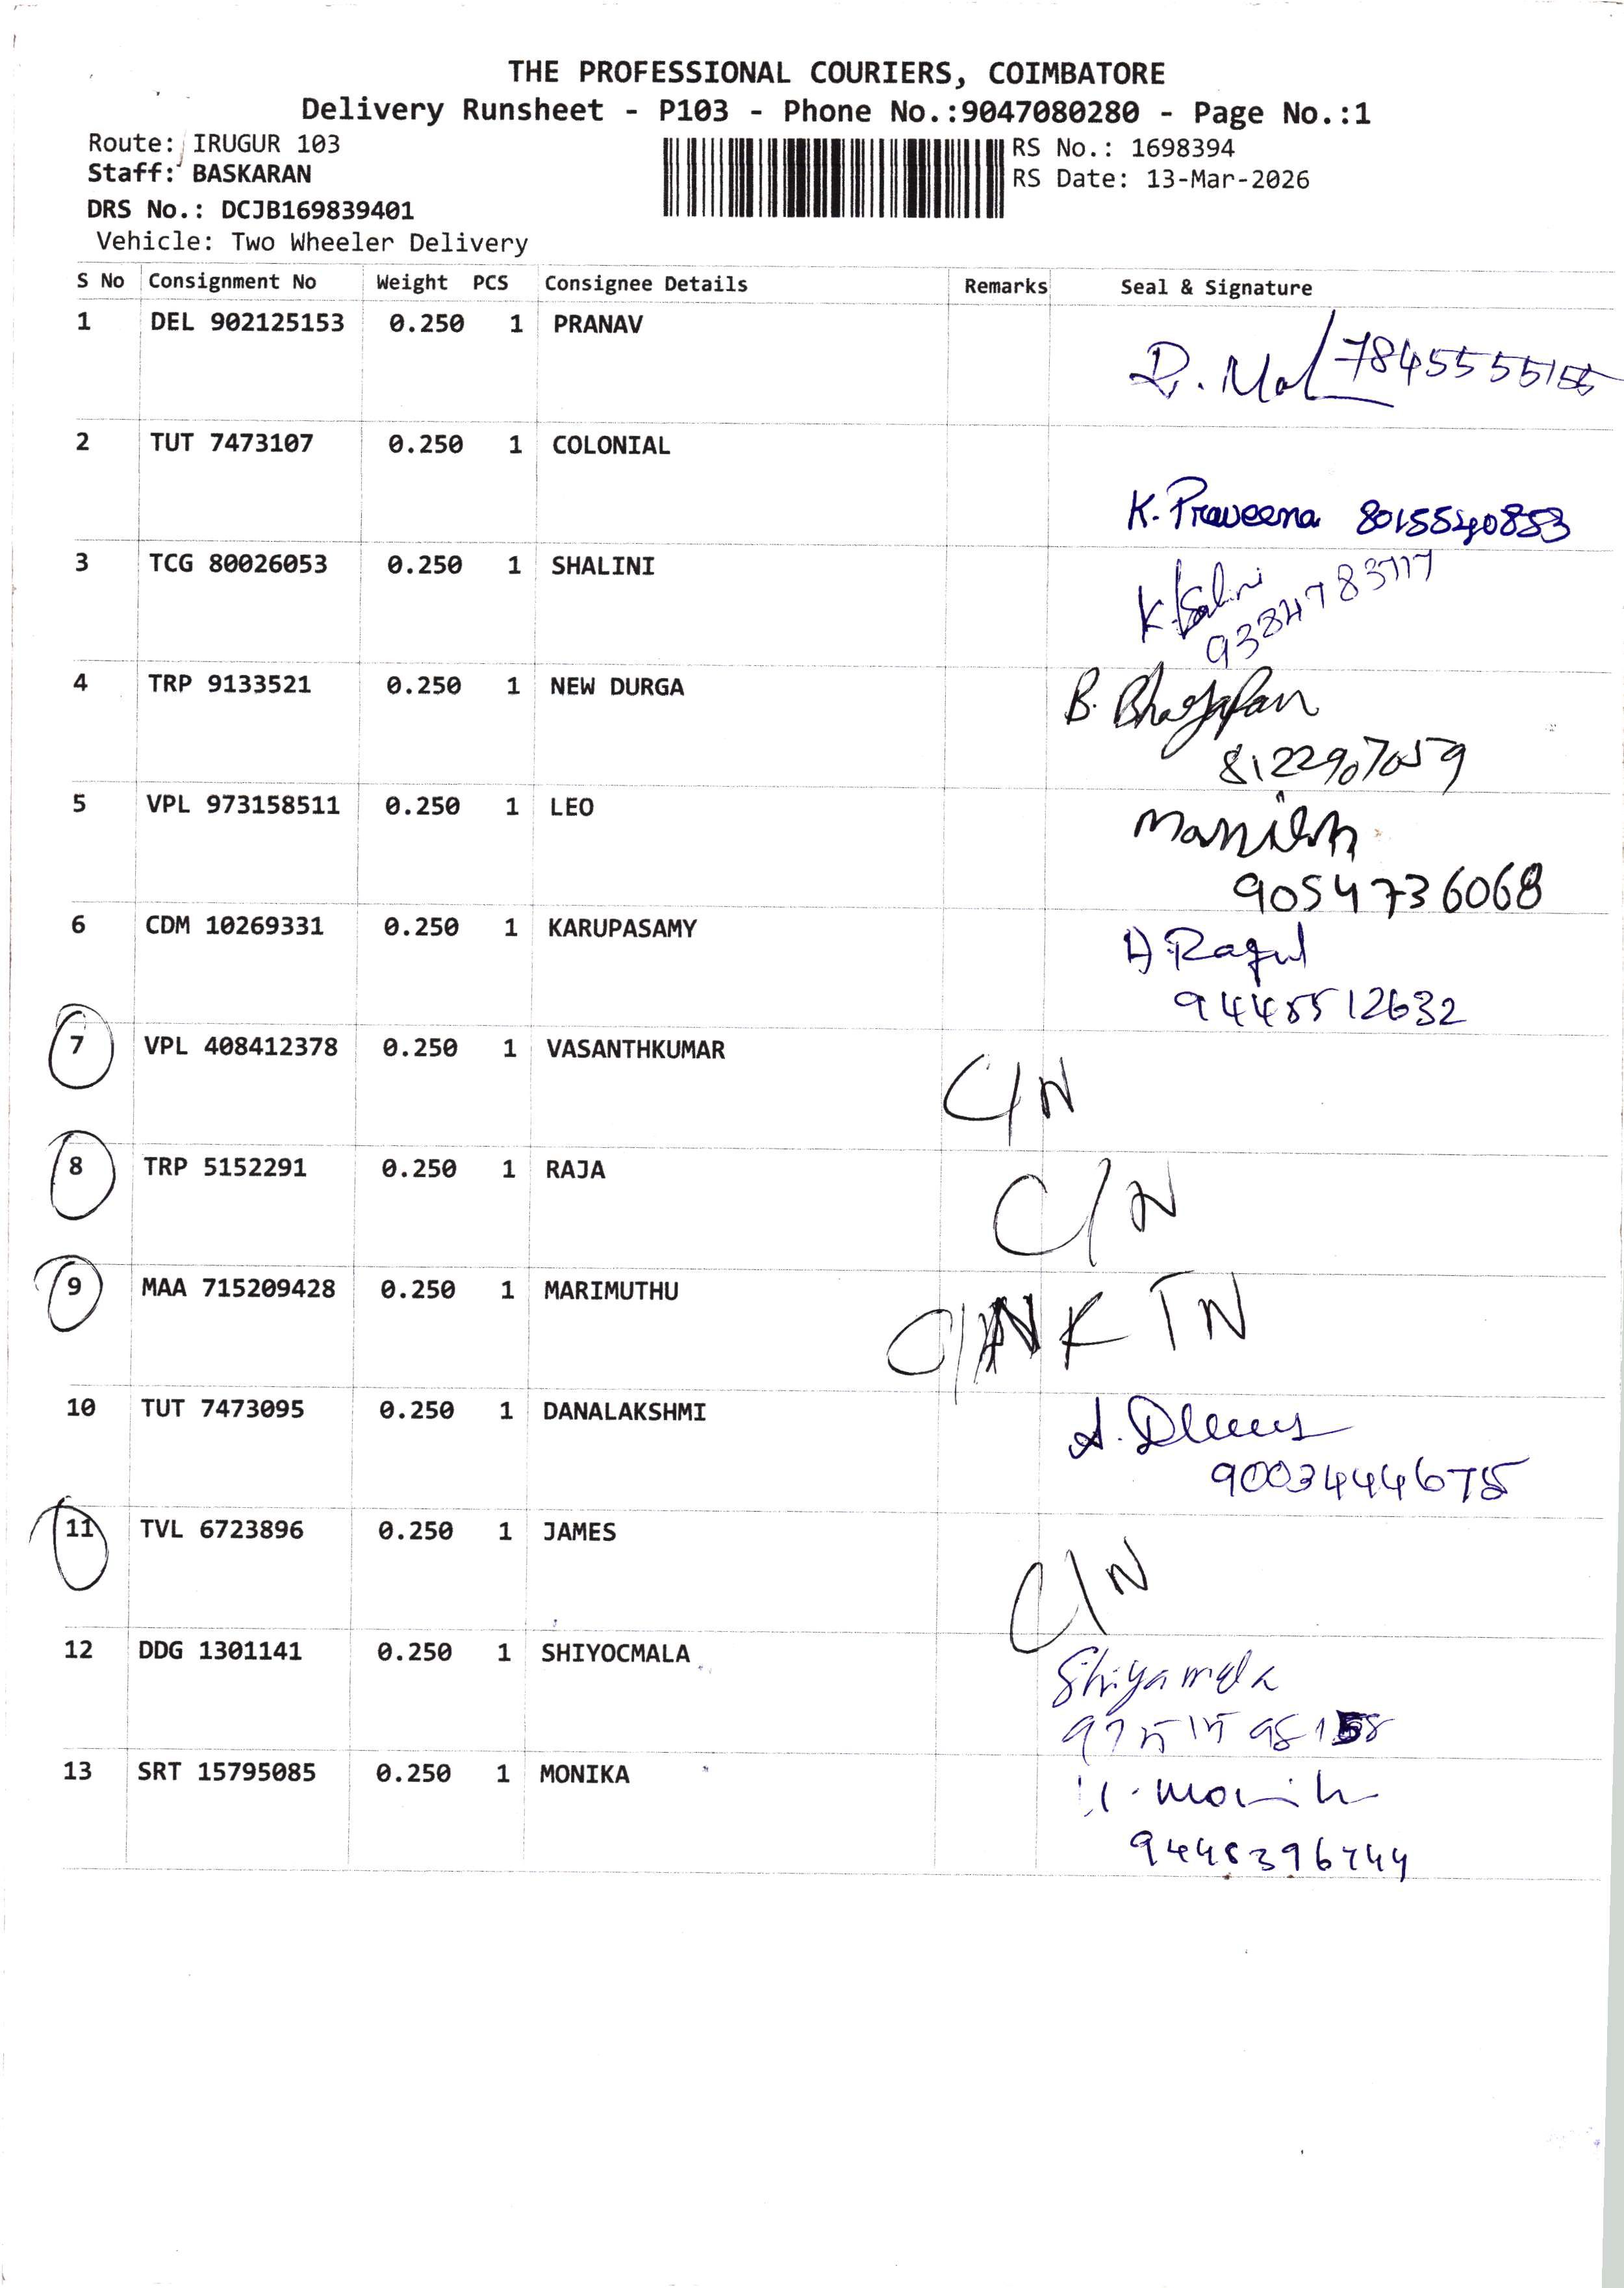 THE PROFESSIONAL COURIERS, COIMBATORE
Delivery Runsheet - P103 - Phone No.:9047080280 - Page No.:1
Route: IRUGUR 103
RS No.: 1698394
Staff: BASKARAN
RS Date: 13-Mar-2026
DRS No.: DCJB169839401
Vehicle: Two Wheeler Delivery
S No Consignment No Weight PCS Consignee Details Remarks Seal & Signature
1 DEL 902125153 0.250 1 PRANAV
2 TUT 7473107 0.250 1 COLONIAL
K. Praveena 8015540853
3 TCG 80026053 0.250 1 SHALINI
9384783717
4 TRP 9133521 0.250 1 NEW DURGA
B.
8122907059
5 VPL 973158511 0.250 1 LEO
9054736068
6 CDM 10269331 0.250 1 KARUPASAMY
Ragul
9448512632
7 VPL 408412378 0.250 1 VASANTHKUMAR
C/N
8 TRP 5152291 0.250 1 RAJA
C/N
9 MAA 715209428 0.250 1 MARIMUTHU
K TN
10 TUT 7473095 0.250 1 DANALAKSHMI
9003444675
11 TVL 6723896 0.250 1 JAMES
C/N
12 DDG 1301141 0.250 1 SHIYOCMALA
Shiyamala
13 SRT 15795085 0.250 1 MONIKA
9448396744